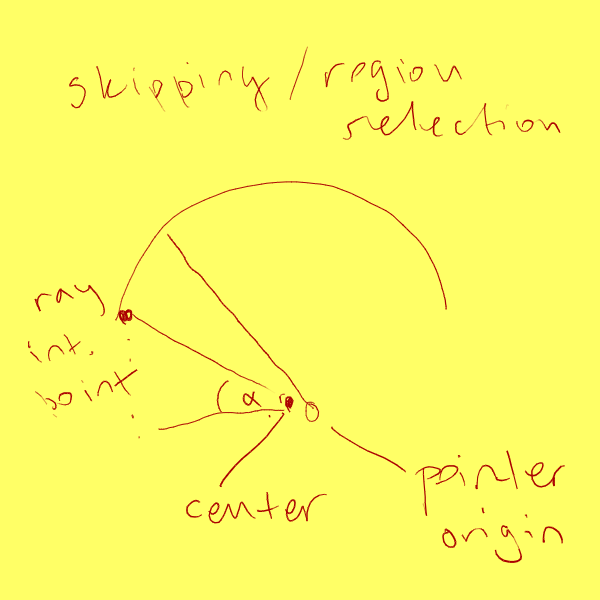 skipping / region
selection
ray
int.
point
α
center
pointer
origin